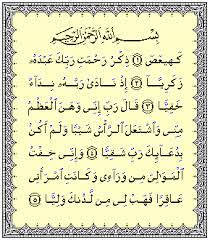 بِسْمِ اللَّهِ الرَّحْمَٰنِ الرَّحِيمِ
كٓهيعٓصٓ ۝١ ذِكْرُ رَحْمَتِ رَبِّكَ عَبْدَهُۥ
زَكَرِيَّآ ۝٢ إِذْ نَادَىٰ رَبَّهُۥ نِدَآءً
خَفِيًّا ۝٣ قَالَ رَبِّ إِنِّى وَهَنَ ٱلْعَظْمُ
مِنِّى وَٱشْتَعَلَ ٱلرَّأْسُ شَيْبًا وَلَمْ أَكُنۢ
بِدُعَآئِكَ رَبِّ شَقِيًّا ۝٤ وَإِنِّى خِفْتُ
ٱلْمَوَٰلِىَ مِن وَرَآءِى وَكَانَتِ ٱمْرَأَتِى
عَاقِرًا فَهَبْ لِى مِن لَّدُنكَ وَلِيًّا ۝٥